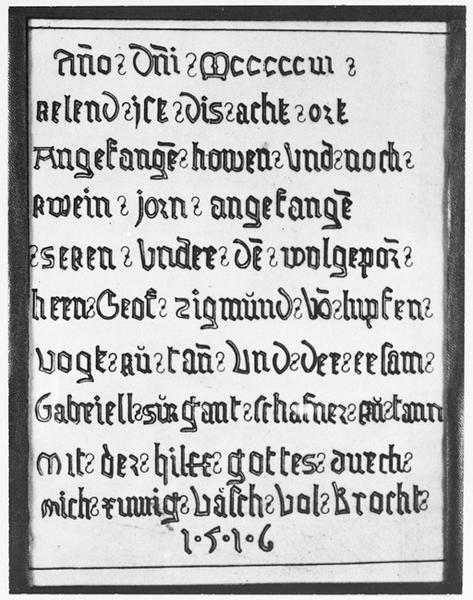 Año : Dñi : Mcccccvi :
zelend : ist : dis : acht : ort
Angefangē : howen : vnd : noch :
zwein : jorn : angefangē
: sezen : vnder : dē : wolgeporñ :
hern : Geof : zigmünd : vō : lupfen :
vogt : zů : tañ : vnd : der : ersam :
Gabriell : sůrgant : schafner : zů : tann
mit : der : hilff : gottes : durch :
mich : rumig : våsch : vol : brocht :
1·5·1·6